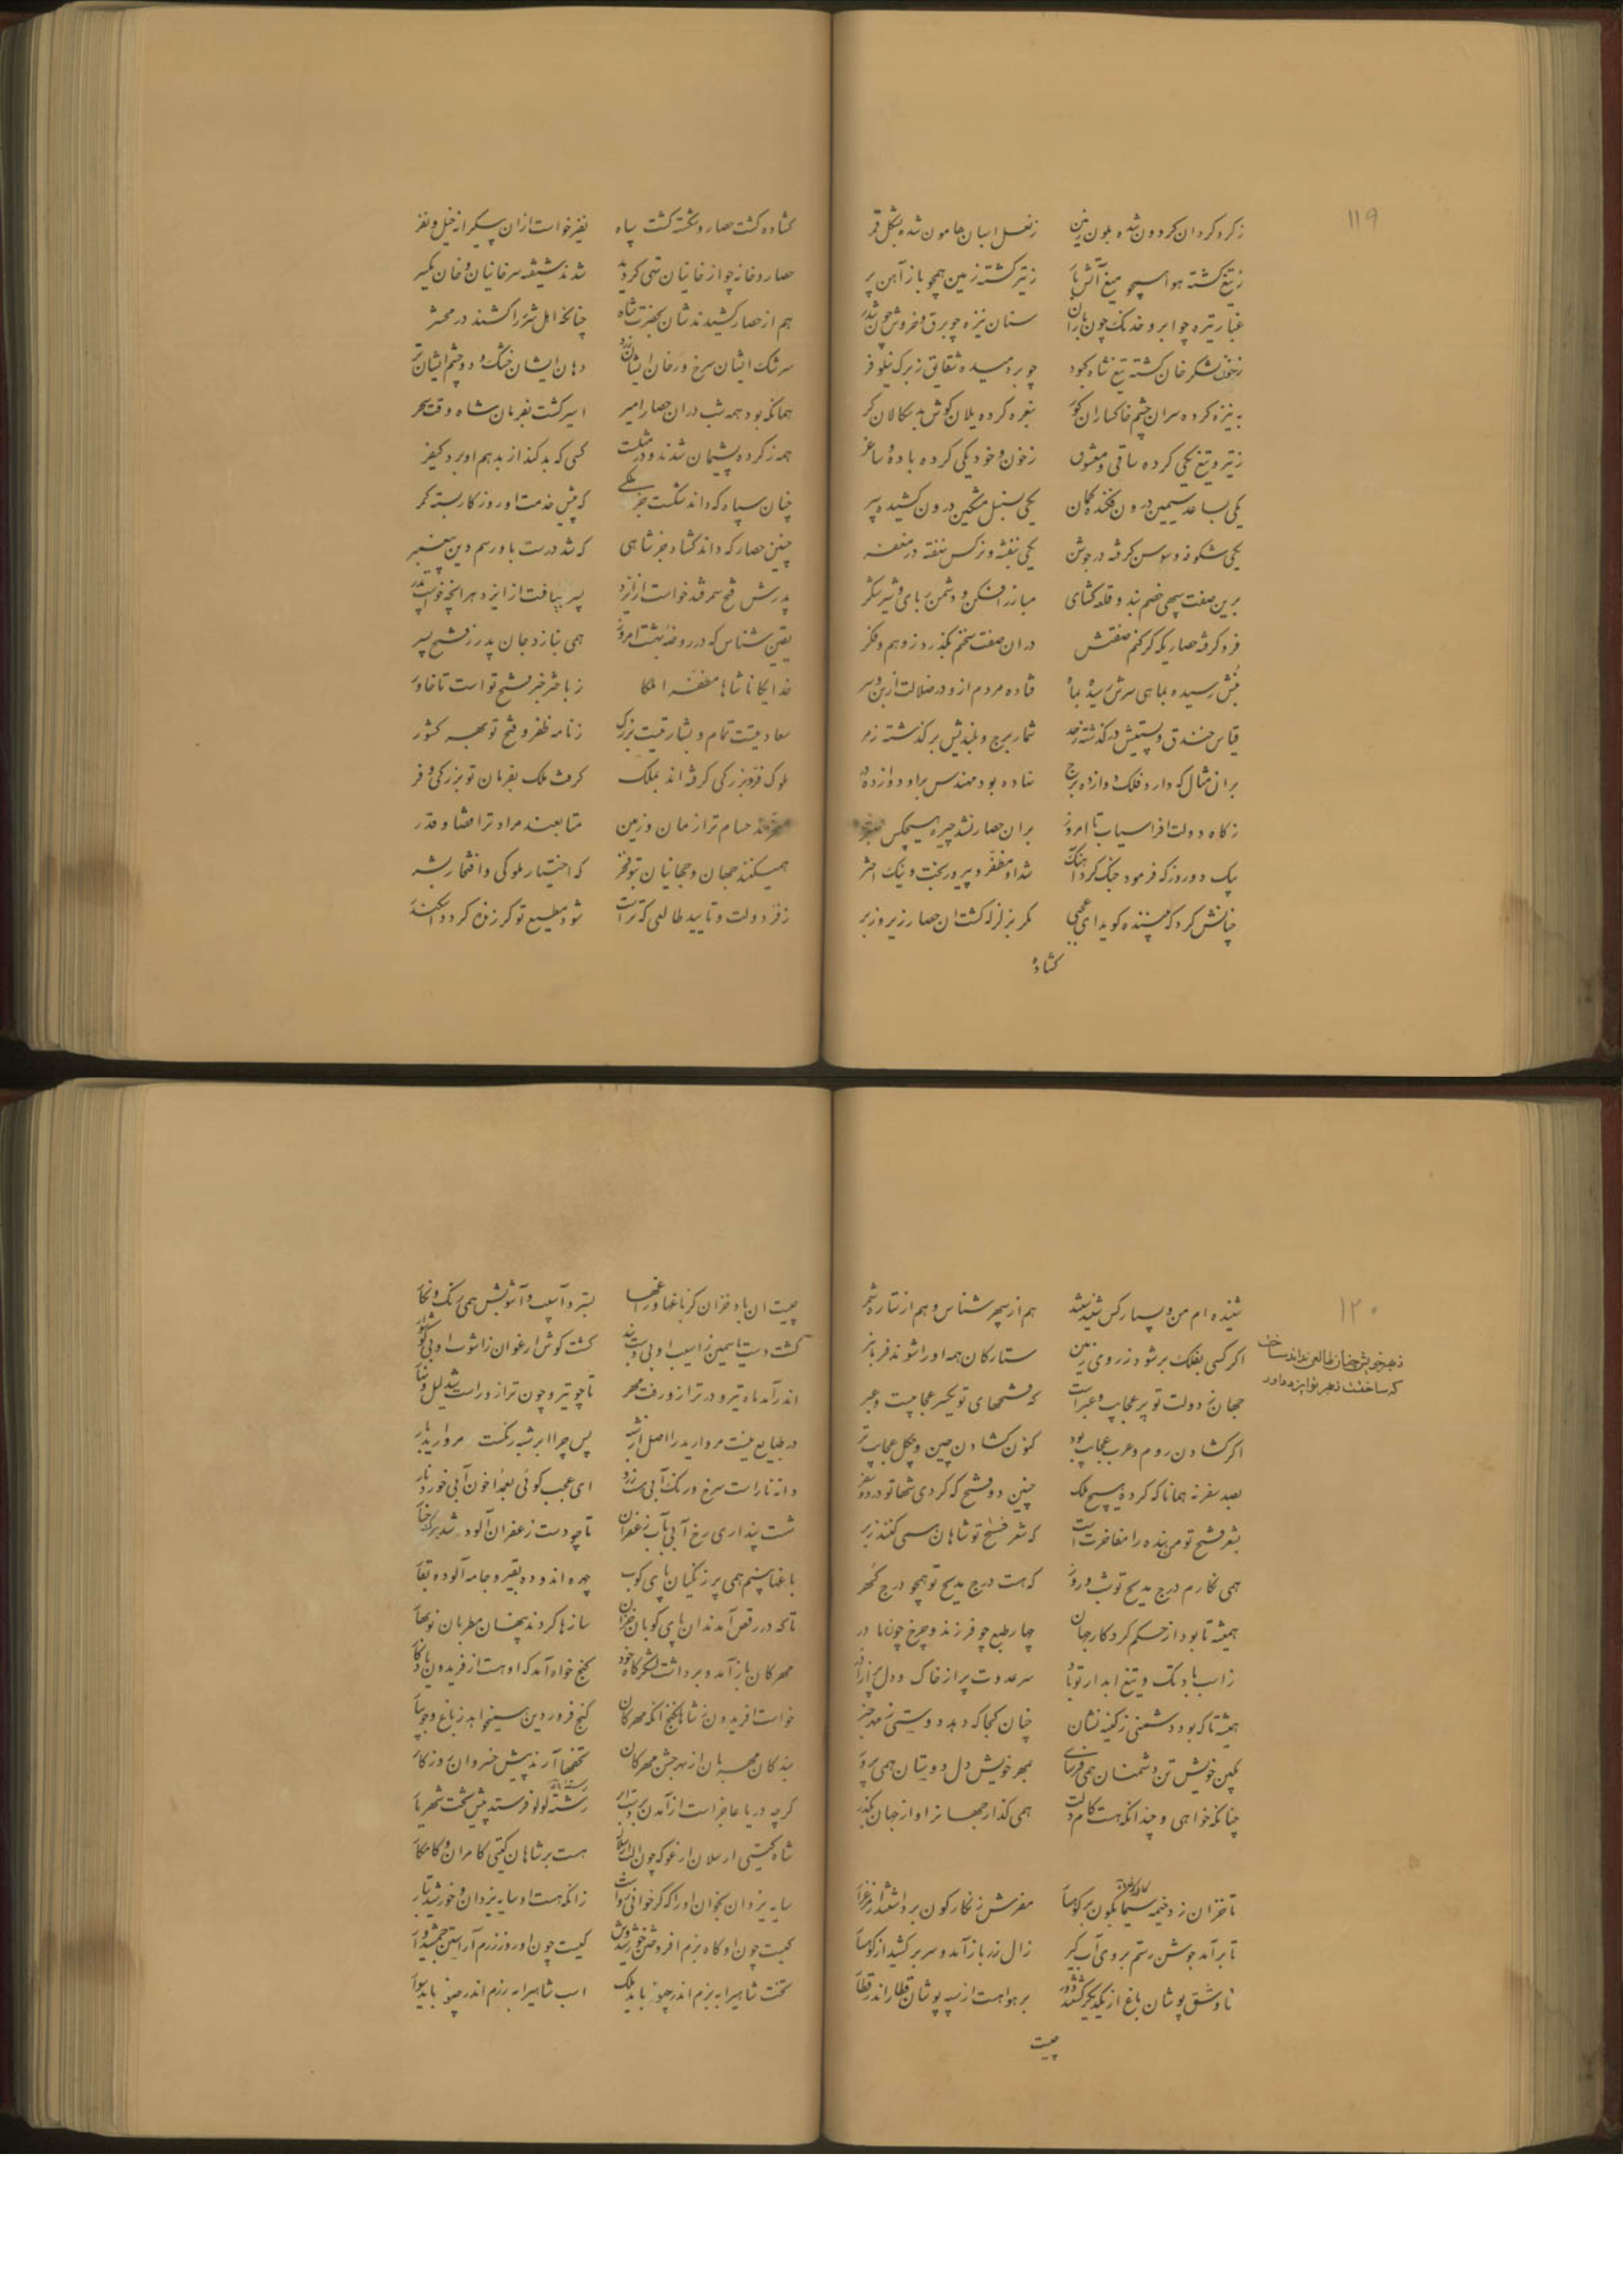 ۱۱۹
ز کرد کردان کردون شده بلون زمین زنعل اسبان هامون شده بشکل قمر
ز تیغ کشته هوا همچو میغ آتش بار ز تیر کشته زمین همچو باز آهن پر
غبار تیره چو ابر و خدنک چون باران سنان نیزه چو برق و خروش چون تندر
ز خون لشکر خان کشته تیغ شاه کبود چو بردمیده شقایق ز برک نیلوفر
به نیزه کرده سران چشم خاکساران کور بنعره کرده یلان کوش بدسکالان کر
ز تیر و تیغ یکی کرده ساقی و معشوق ز خون و خود یکی کرده باده و ساغر
یکی بساعد سیمین درون فکنده کمان یکی بسنبل مشکین درون کشیده سپر
یکی شکوفه و سوسن کرفته در جوشن یکی بنفشه و نرکس نهفته در مغفر
برین صفت سپهی خصم بند و قلعه کشای مبارز افکن و دشمن ربای و شیر شکر
فرو کرفته حصاریکه کر کنم صفتش در آن صفت سخنم بکذرد ز وهم و فکر
بنش رسیده بماهی سرش رسیده بماه فتاده مردم ازو در ضلالت از بن و سر
قیاس خندق و پستیش در کذشته ز حد شمار برج و بلندیش بر کذشته ز مر
بران مثال که دارد فلک دوازده برج نهاده بود مهندس براو دوازده در
ز کاه دولت افراسیاب تا امروز بران حصار نشد چیره هیچکس
بیک دو روز که فرمود جنک کرد آهنک شد او مظفر و پیروزبخت و نیک اختر
چنانش کرد که بیننده کوید ای عجبی مکر بزلزله کشت آن حصار زیر و زبر
کشاده
کشاده کشت حصار و شکسته کشت سپاه نفیر خواست از آن بیکرانه خیل و نفر
حصار و خانه چو از خانیان تهی کردید شدند شیفته سر خانیان و خان یکسر
هم از حصار کشیدندشان بحضرت شاه چنانکه اهل شرر را کشند در محشر
سرشک ایشان سرخ و رخان ایشان زرد دهان ایشان خشک و دو چشم ایشان تر
همانکه بود همه شب در آن حصار امیر اسیر کشت بفرمان شاه وقت سحر
همه ز کرده پشیمان شدند و در مثلست کسی که بد کند از بد هم او برد کیفر
چنان سپاه که داند شکست جز ملکی که پیش خدمت او روزکار بسته کمر
چنین حصار که داند کشاد جز شاهی که شد درست باو رسم دین پیغمبر
پدرش فتح سمرقند خواست از ایزد پسر بیافت از ایزد هر آنچه خواست پدر
یقین شناس که در روضه بهشت امروز همی بنازد جان پدر ز فتح پسر
خدایکانا شاها مظفرا ملکا ز باختر خبر فتح تو است تا خاور
سعادتیست تمام و بشارتیست بزرک ز نامه ظفر و فتح تو بهر کشور
ملوک فر و بزرکی کرفته اند بملک کرفت ملک بفرمان تو بزرکی و فر
مسخرند حسام ترا زمان و زمین متابعند مراد ترا قضا و قدر
همیکنند جهان و جهانیان بتو فخر که اختیار ملوکی و افتخار بشر
ز فر دولت و تایید طالعی که تراست شود مطیع تو کر زنده کردد اسکندر
۱۲۰
شنیده ام من و بسیار کس شنیدستند هم از سپهر شناس و هم از ستاره شمر
اکر کسی بفلک بر شود ز روی زمین ستارکان همه او را شوند فرمانبر
ز بهر خویش چنان طالعی نداند ساخت
که ساختست ز بهر تو ایزد داور
جهان ز دولت تو پر عجایب و عبراست که فتحهای تو یکسر عجایبست و عبر
اکر کشادن روم و عرب عجایب بود کنون کشادن چین و چکل عجایب تر
بصد سفر نه همانا که کرد هیچ ملک چنین دو فتح که کردی شها تو در دو سفر
بشعر فتح تو من بنده را مفاخرت است که شعر فتح تو شاهان همی کنند ز بر
همی نکارم درج مدیح تو شب و روز که هست درج مدیح تو همچو درج کهر
همیشه تا بود از حکم کردکار جهان چهار طبع چو فرزند و چرخ چون مادر
ز اسب بادتک و تیغ آبدار تو باد سر عدوت پر از خاک و دل پر از آذر
همیشه تا که بود دشمنی ز کینه نشان چنان کجا که دهد دوستی ز مهر خبر
بکین خویش تن دشمنان همی فرسای بمهر خویش دل دوستان همی پرور
چنانکه خواهی و چندانکه هست کام دلت همی کذار جهانرا و از جهان مکذر
تا خزان زد خیمه سیمابکون بر کوهسار مفرش زنکارکون برداشتند از مرغزار
تا برآمد جوشن رستم بروی آبکیر زال زر باز آمد و سر بر کشید از کوهسار
تا وشق پوشان باغ از یکدیکر کشتند دور بر هوا هست از سیه پوشان قطار اندر قطار
چیست
چیست آن باد خزان کز باغها و راغها بسترد آسیب و آشوبش همی رنک و نکار
کشت دست یاسمین ز آسیب او بی دستبند کشت کوش ارغوان ز آشوب او بی کوشوار
اندر آمد ماه تیر و در ترازو رفت مهر تا چو تیر و چون ترازو راست شد لیل و نهار
در طبایع نیست مروارید را اصل از شبه پس چرا ابر شبه رنکست مروارید بار
دانه نار است سرخ و رنک آبی هست زرد ای عجب کوئی بعمدا خون آبی خورد نار
شست پنداری رخ آبی بآب زعفران تا چو دست زعفران آلود شد برک چنار
باغها بینم همی پر زنکیان پای کوب چهره اندوده بقیر و جامه آلوده بقار
تا که در رقص آمدند آن پای کوبان خزان سازها کردند پنهان مطربان نوبهار
مهرکان باز آمد و برداشت لشکرکاه خود کنج خواه آمد که او هست از فریدون یادکار
خواست افریدون ز شاهان کنج آنکه مهرکان کنج فروردین همیخواهد ز باغ و جویبار
بندکان مهربان از بهر جشن مهرکان تحفها آرند پیش خسروان روزکار
کرچه دریا عاجز است از آمدن بر دست ابر رشته لولو فرستد پیش تخت شهریار
شاه کیتی ارسلان ارغو که چون الب ارسلان هست بر شاهان کیتی کامران و کامکار
سایه یزدان بخوان او را که کر خوانی رواست زانکه هست او سایه یزدان و خورشید تبار
کیست چون او کاه بزم افروختن خورشیدوش کیست چون او روز رزم آراستن جمشیدوار
تخت شاهی را به بزم اندر چنو باید ملک اسب شاهی را به رزم اندر چنو باید سوار